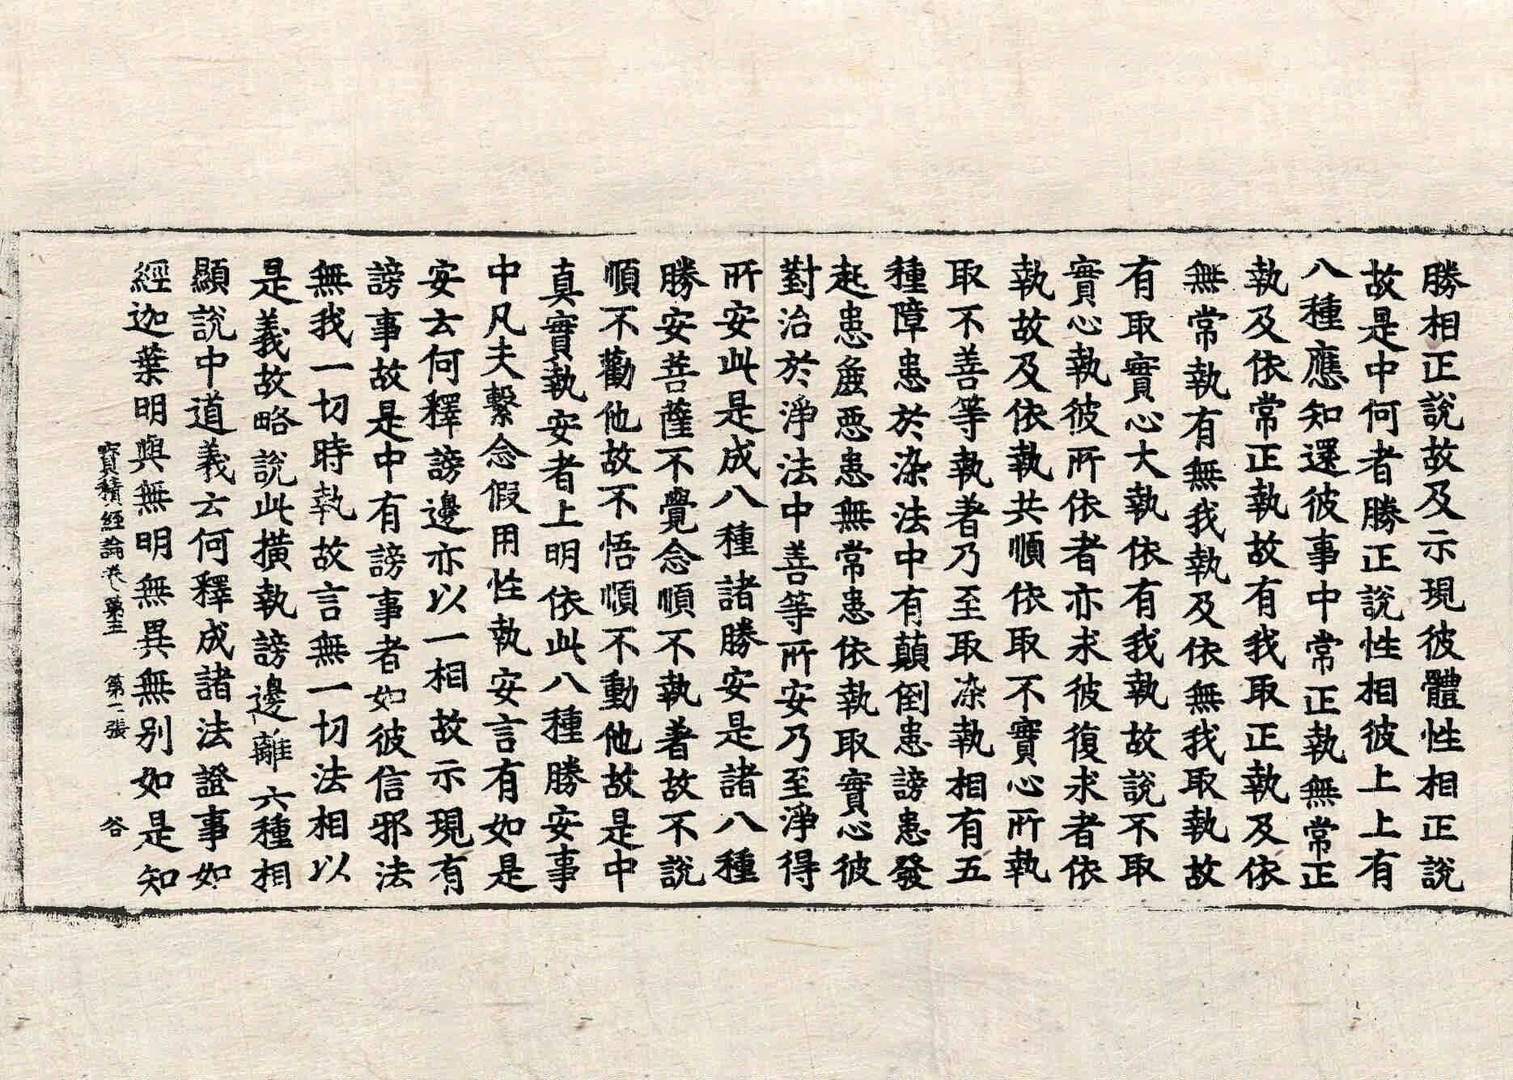 勝相正說故及示現彼體性相正說
故是中何者勝正說性相彼上上有
八種應知還彼事中常正執無常正
執及依常正執故有我取正執及依
無常執有無我執及依無我取執故
有取實心大執依有我執故說不取
實心執彼所依者亦求彼復求者依
執故及依執共順依取不實心所執
取不善等執著乃至取染執相有五
種障患於染法中有顛倒患謗患發
起患麁惡患無常患依執取實心彼
對治於淨法中善等所安乃至淨得
所安此是成八種諸勝安是諸八種
勝安菩薩不覺念順不執著故不說
順不勸他故不悟順不動他故是中
真實執安者上明依此八種勝安事
中凡夫繫念假用性執安言有如是
安去何釋謗邊亦以一相故示現有
謗事故是中有謗事者如彼信邪法
無我一切時執故言無一切法相以
是義故略說此橫執謗邊離六種相
顯說中道義云何釋成諸法證事如
經迦葉明與無明無異無別如是知
寶積經論卷 第 第一張 谷